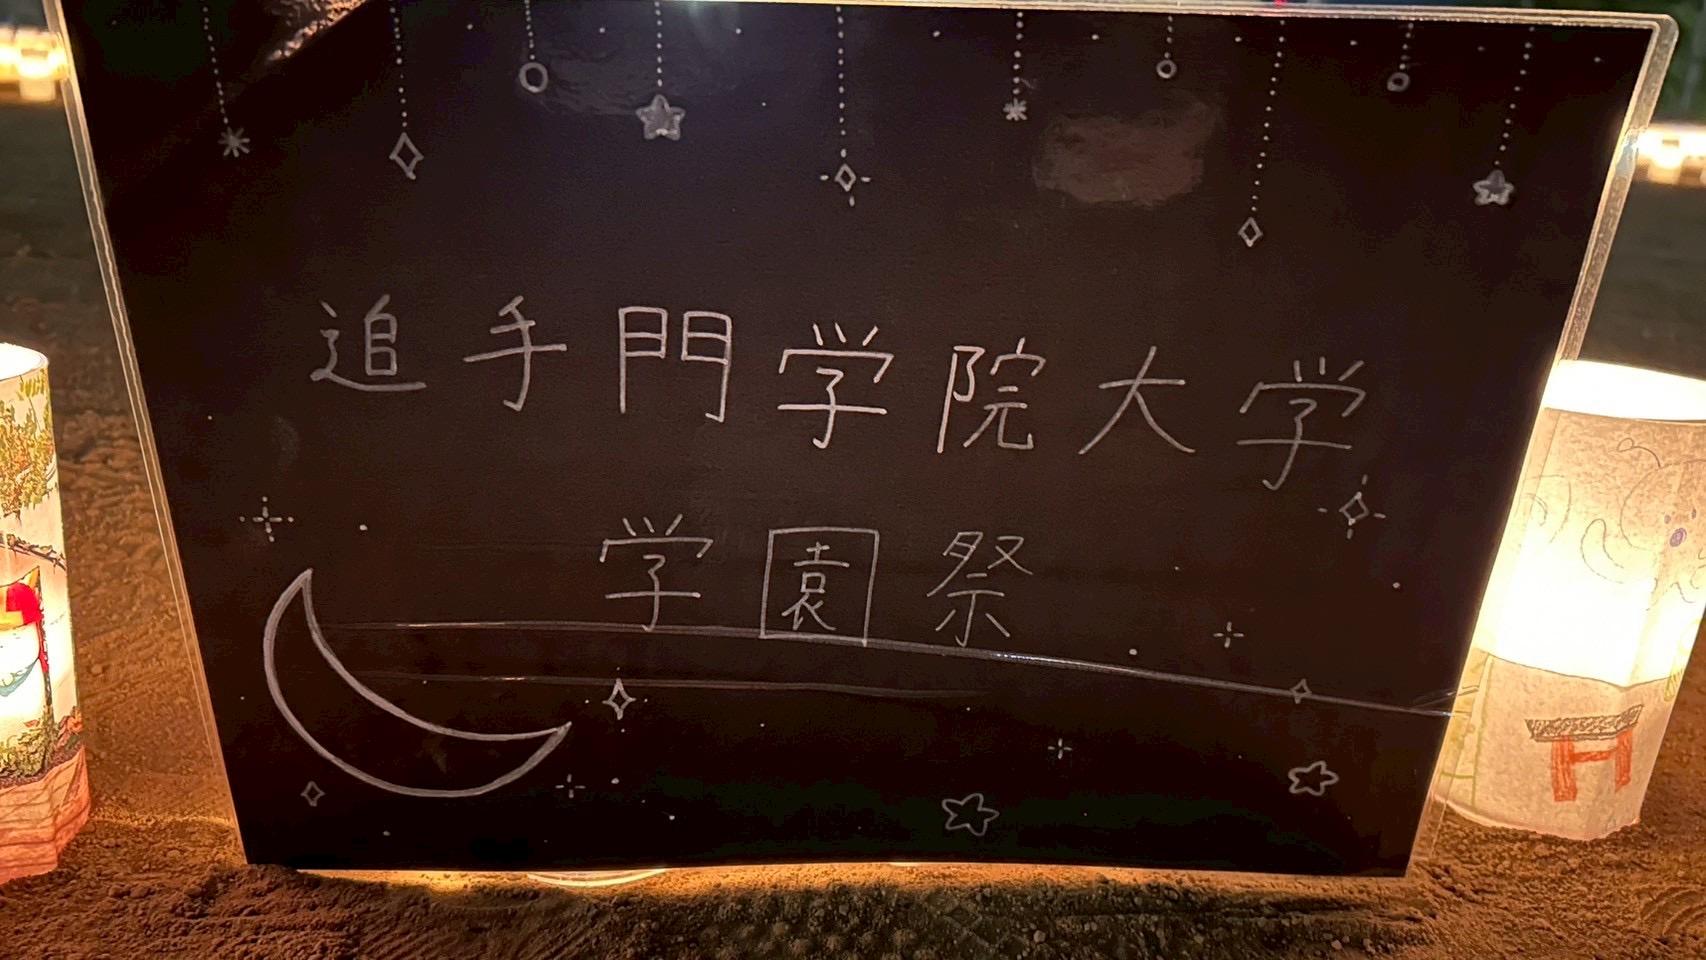 追手門学院大学
学園祭